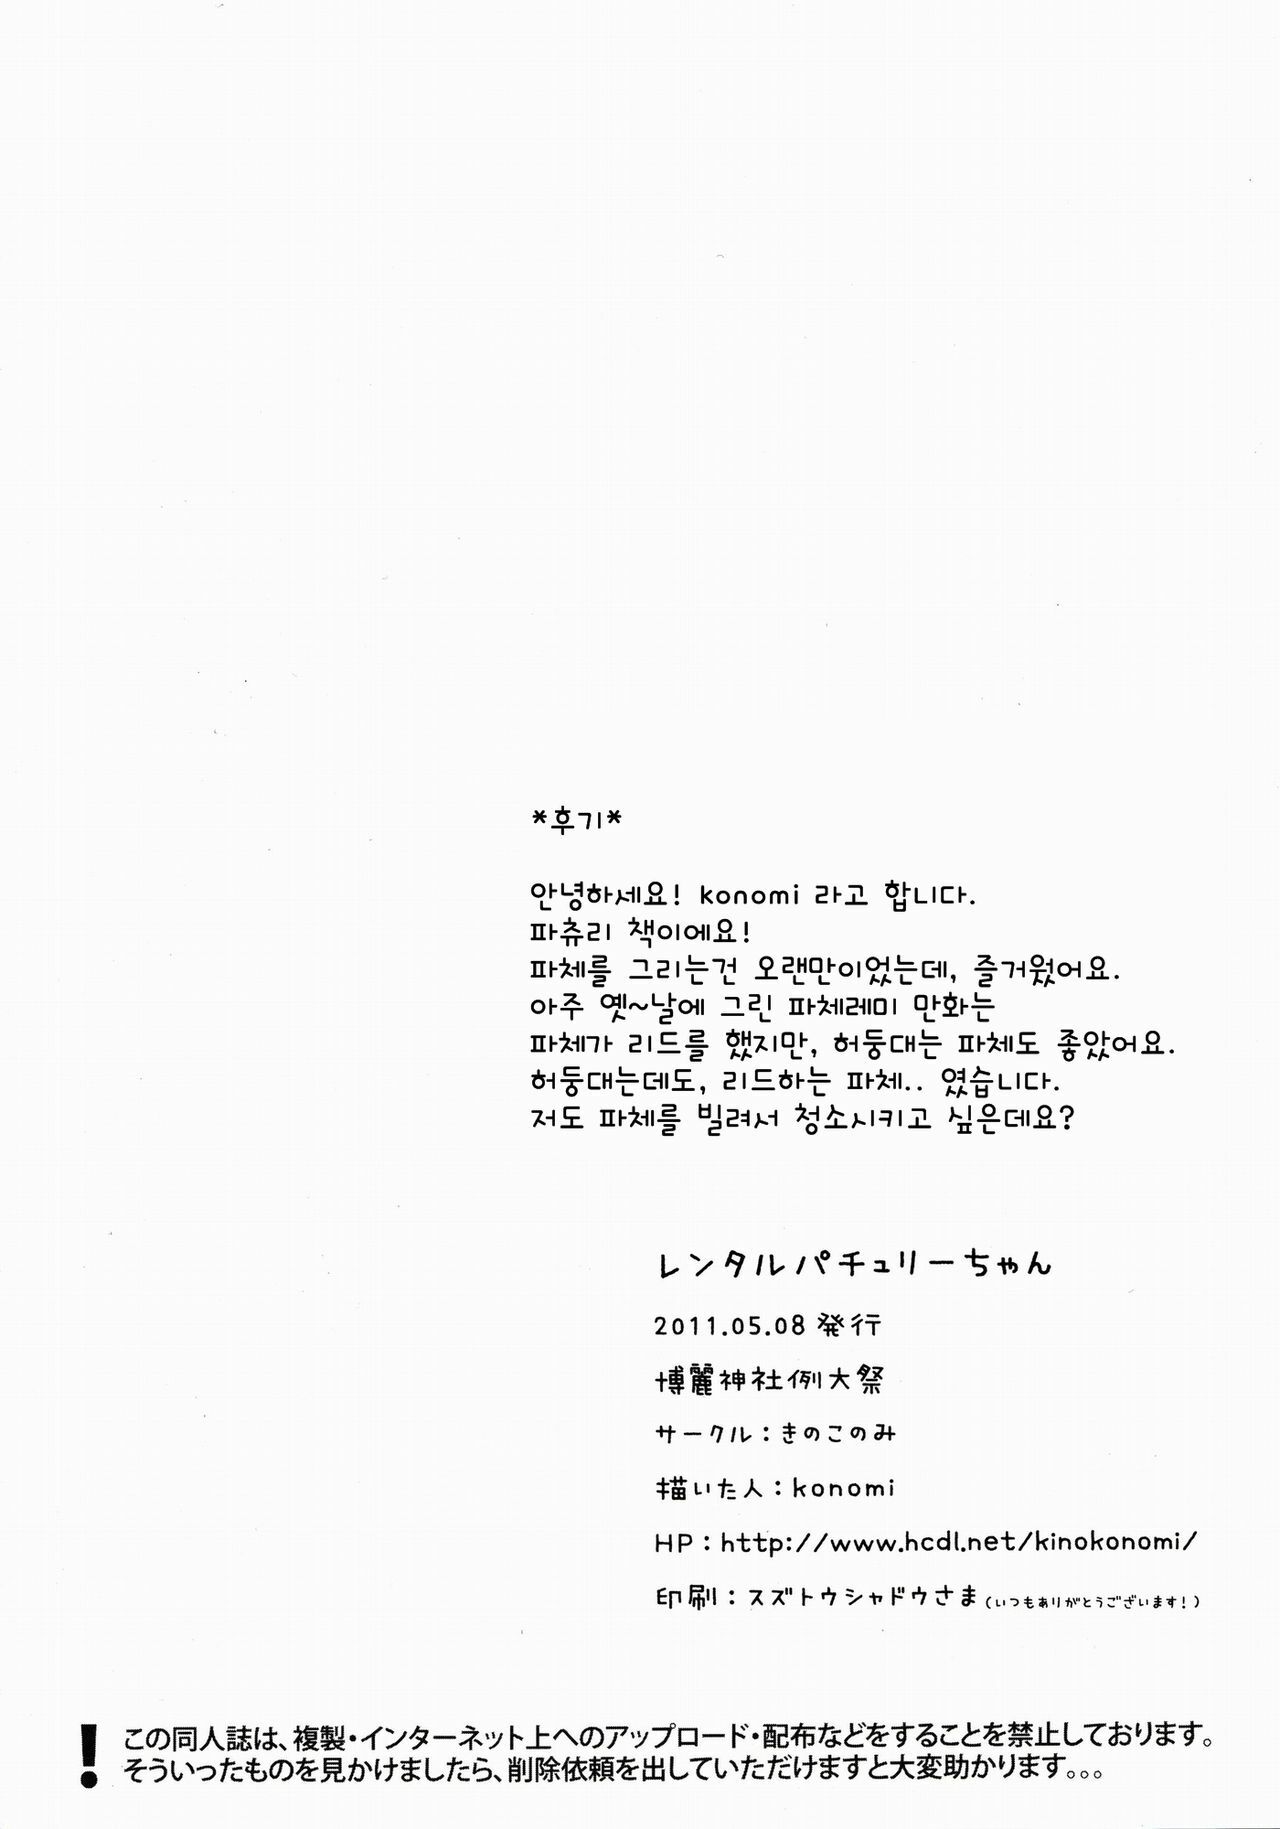 *후기*
안녕하세요! konomi 라고 합니다.
파츄리 책이에요!
파체를 그리는건 오랜만이었는데, 즐거웠어요.
아주 옛~날에 그린 파체레미 만화는
파체가 리드를 했지만, 허둥대는 파체도 좋았어요.
허둥대는데도, 리드하는 파체.. 였습니다.
저도 파체를 빌려서 청소시키고 싶은데요?
レンタルパチュリーちゃん
2011.05.08 発行
博麗神社例大祭
サークル：きのこのみ
描いた人：konomi
HP：http://www.hcdl.net/kinokonomi/
印刷：スズトウシャドウさま（いつもありがとうございます！）
！この同人誌は、複製・インターネット上へのアップロード・配布などをすることを禁止しております。
そういったものを見かけましたら、削除依頼を出していただけますと大変助かります。。。